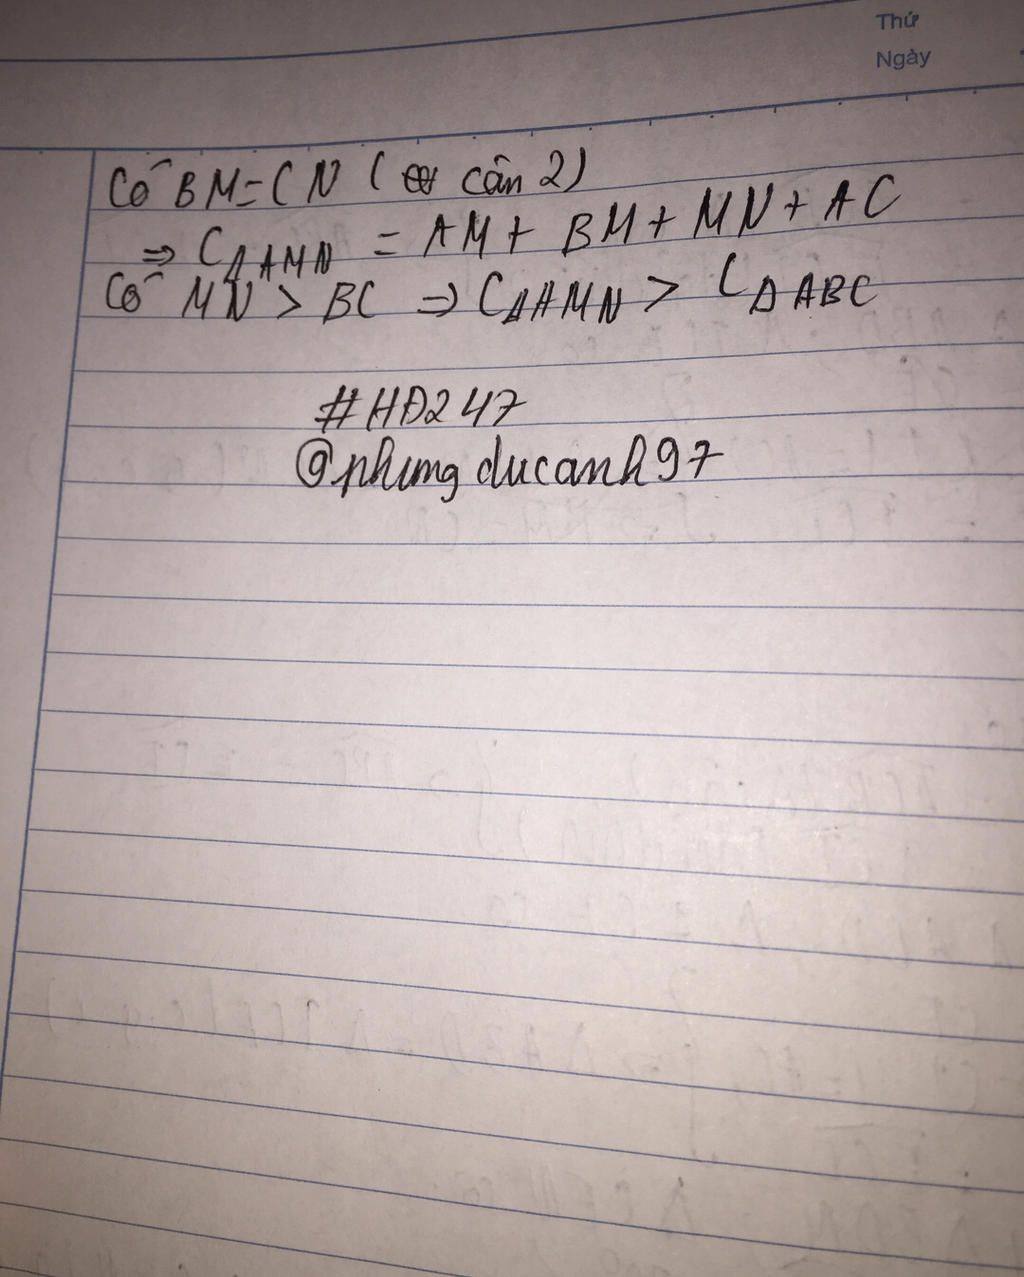 Thứ
Ngày
Có BM = CN ( câu 2)
⇒ CΔAMN = AM + BM + MN + AC
Có MN > BC ⇒ CΔAMN > CΔABC
#HĐ247
@phungducanh97